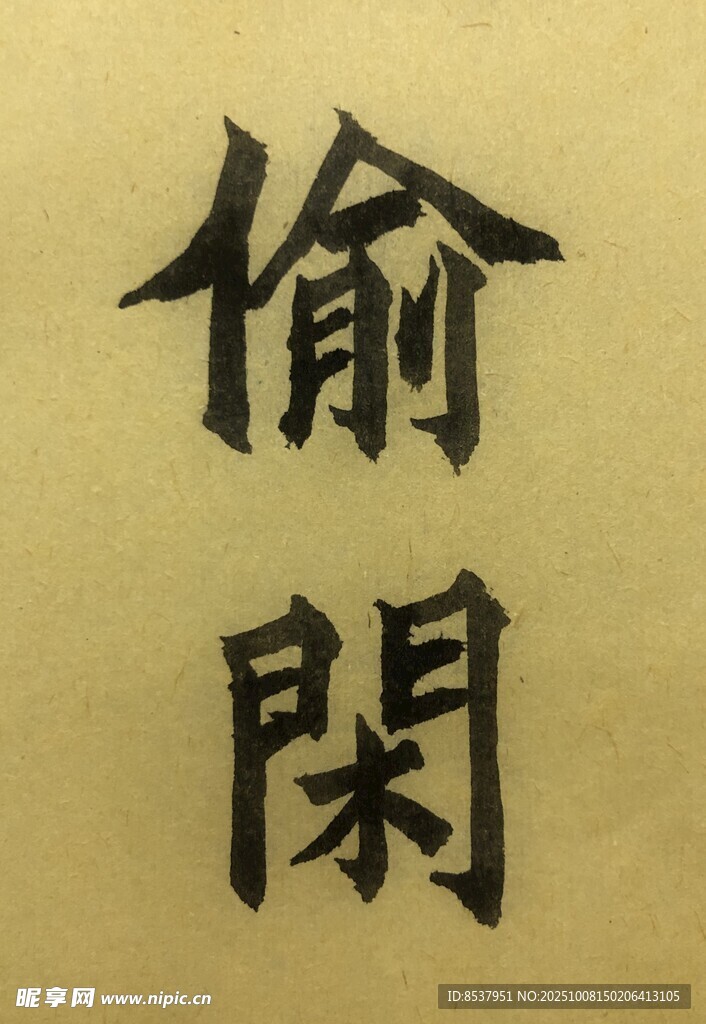 偷
閑
昵享网 www.nipic.cn
ID:8537951 NO:20251008150206413105